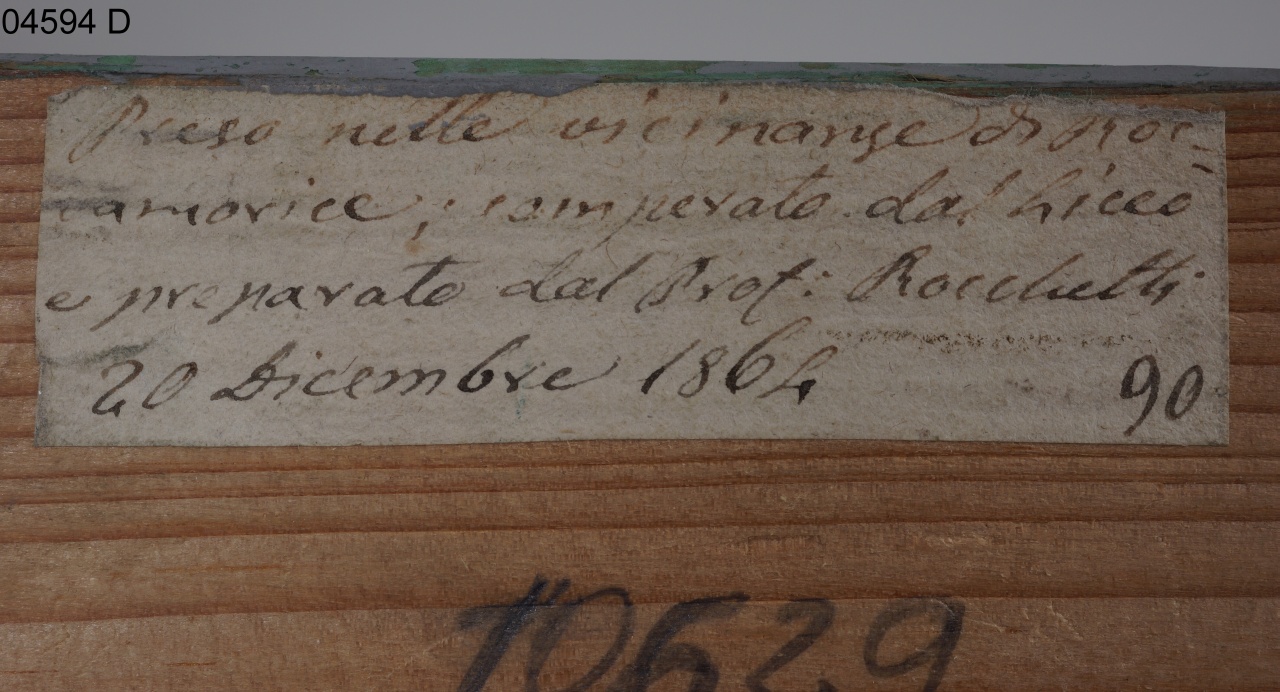 04594 D
Preso nelle vicinanze di Roc=
camorice; comperato dal Liceo
e preparato dal Prof: Rocchetti
20 Dicembre 1864 90
10529